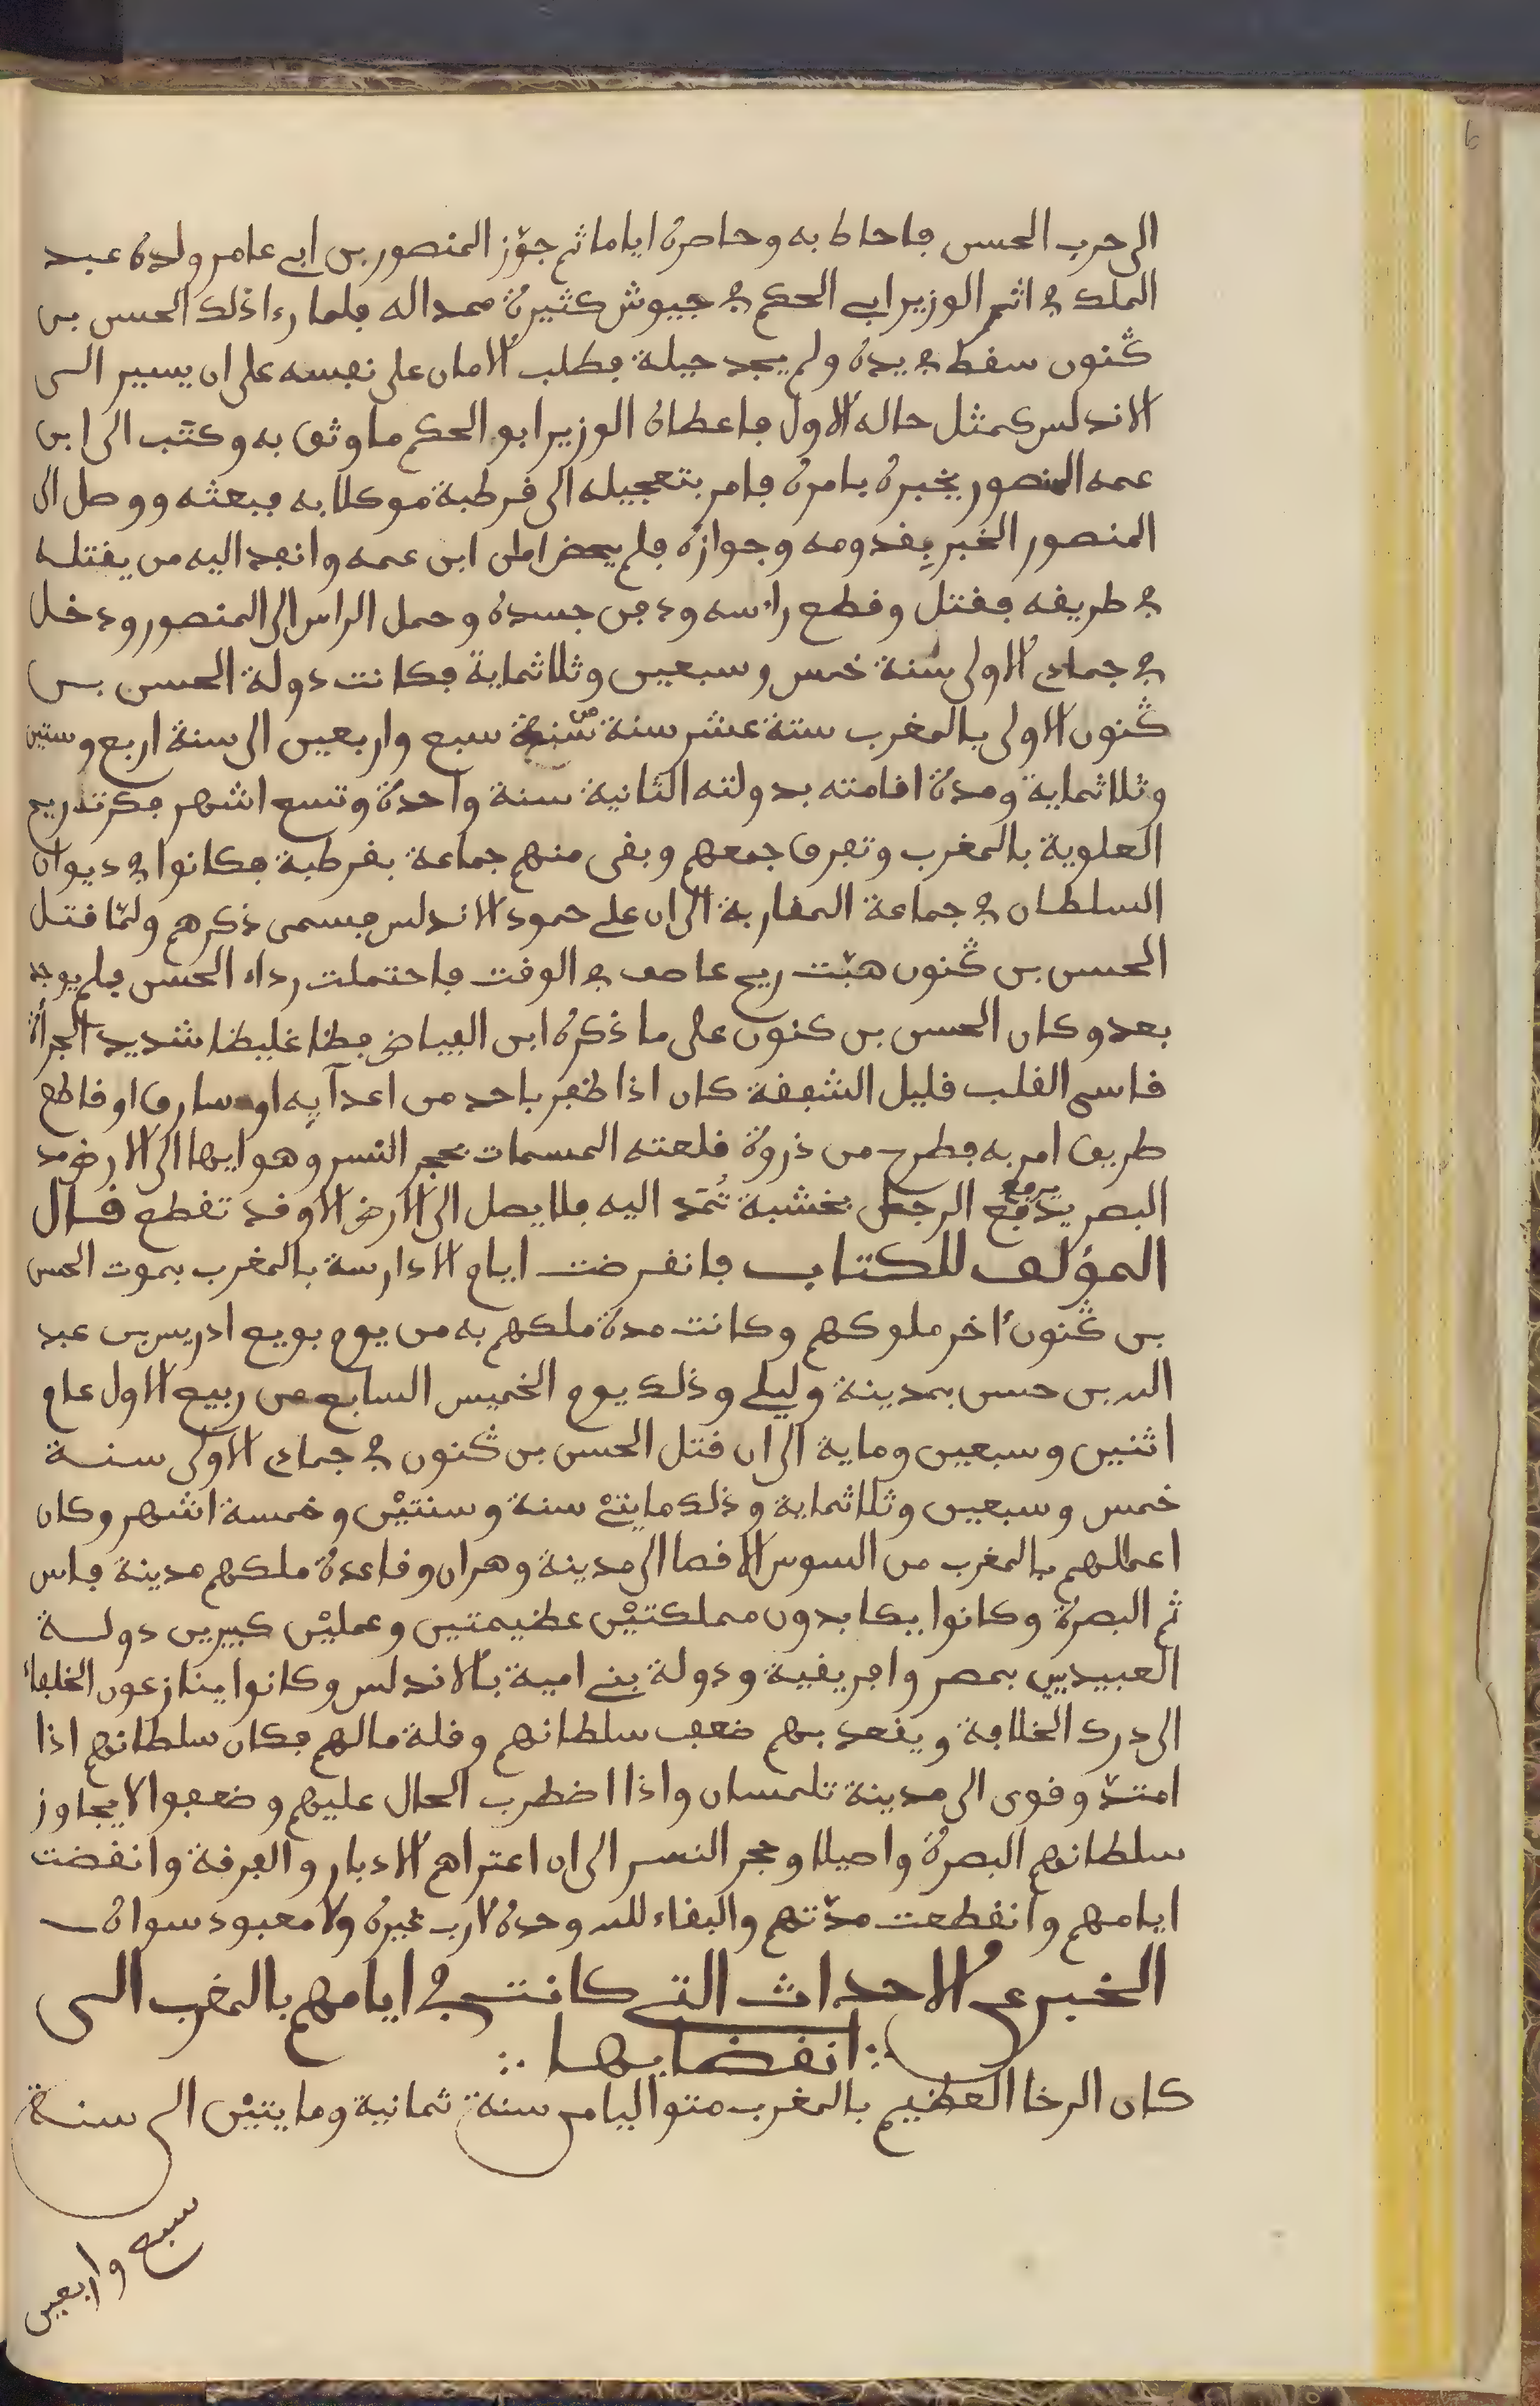 الى حرب الحسن فاحاط به وحاصره اياما ثم جوّز المنصور بن ابي عامر ولده عبد
الملك في اثر الوزير ابي الحكم في جيوش كثيرة ممدا له فلما رءا ذلك الحسن بن
ڭنون سقط في يده ولم يجد حيلة فطلب الامان على نفسه على ان يسير الى
الاندلس كمثل حاله الاول فاعطاه الوزير ابو الحكم ما وثق به وكتب الى ابن
عمه المنصور يخبره بامره فامر بتعجيله الى قرطبة موكلا به فبعثه ووصل الى
المنصور الخبر بقدومه وجوازه فلم يمض امان ابن عمه وانفذ اليه من يقتله
في طريقه فقتل وقطع راسه ودفن جسده وحمل الراس الى المنصور ودخل
في جمادى الاولى سنة خمس وسبعين وثلاثماية فكانت دولة الحسن بن
ڭنون الاولى بالمغرب ستة عشر سنة من سنة سبع واربعين الى سنة اربع وستين
وثلاثماية ومدة اقامته بدولته الثانية سنة واحدة وتسع اشهر فركدت ريح
العلوية بالمغرب وتفرق جمعهم وبقى منهم جماعة بقرطبة فكانوا في ديوان
السلطان في جماعة المغاربة الى ان على حمود الاندلس فسمى ذكرهم ولمّا قتل
الحسن بن ڭنون هبّت ريح عاصف في الوقت فاحتملت رداء الحسن فلم يوجد
بعد وكان الحسن بن كنون على ما ذكره ابن الفياض فظا غليظا شديد الجرأة
قاسى القلب قليل الشفقة كان اذا ظفر باحد من اعدآيه او سارق او قاطع
طريق امر به فطرح من ذروة قلعته المسمات بحجر النسر وهو ايها الى الارض مد
البصر يدفع يرفع الرجل بخشبة تُمَد اليه فلا يصل الى الارض الا وقد تقطع قال
المؤلف للكتاب فانقرضت ايام الادارسة بالمغرب بموت الحسن
بن ڭنون ءاخر ملوكهم وكانت مدة ملكهم به من يوم بويع ادريس بن عبد
الله بن حسن بمدينة وليلي وذلك يوم الخميس السابع من ربيع الاول عام
اثنين وسبعين وماية الى ان قتل الحسن بن ڭنون في جمادى الاولى سنة
خمس وسبعين وثلاثماية وذلك مايتىْ سنة وسنتيْن وخمسة اشهر وكان
اعمالهم بالمغرب من السوس الاقصا الى مدينة وهران وقاعدة ملكهم مدينة فاس
ثم البصرة وكانوا يكابدون مملكتيْن عظيمتين وعمليْن كبيرين دولة
العبيديين بمصر وافريقية ودولة بني امية بالاندلس وكانوا ينازعون الخلفاء
الى درك الخلافة ويقعد بهم ضعف سلطانهم وقلة مالهم فكان سلطانهم اذا
امتدّ وقوى الى مدينة تلمسان واذا اضطرب الحال عليهم وضعفوا لا يجاوز
سلطانهم البصرة واصيلا وحجر النسر الى ان اعتراهم الادبار والفرقة وانقضت
ايامهم وانقطعت مدّتهم والبقاء لله وحده لا رب غيره ولا معبود سواه
الخبر عن الاحداث التي كانت في ايامهم بالمغرب الى
انقضايها
كان الرخا العظيم بالمغرب متواليا من سنة ثمانية ومايتيْن الى سنة
سبع واربعين